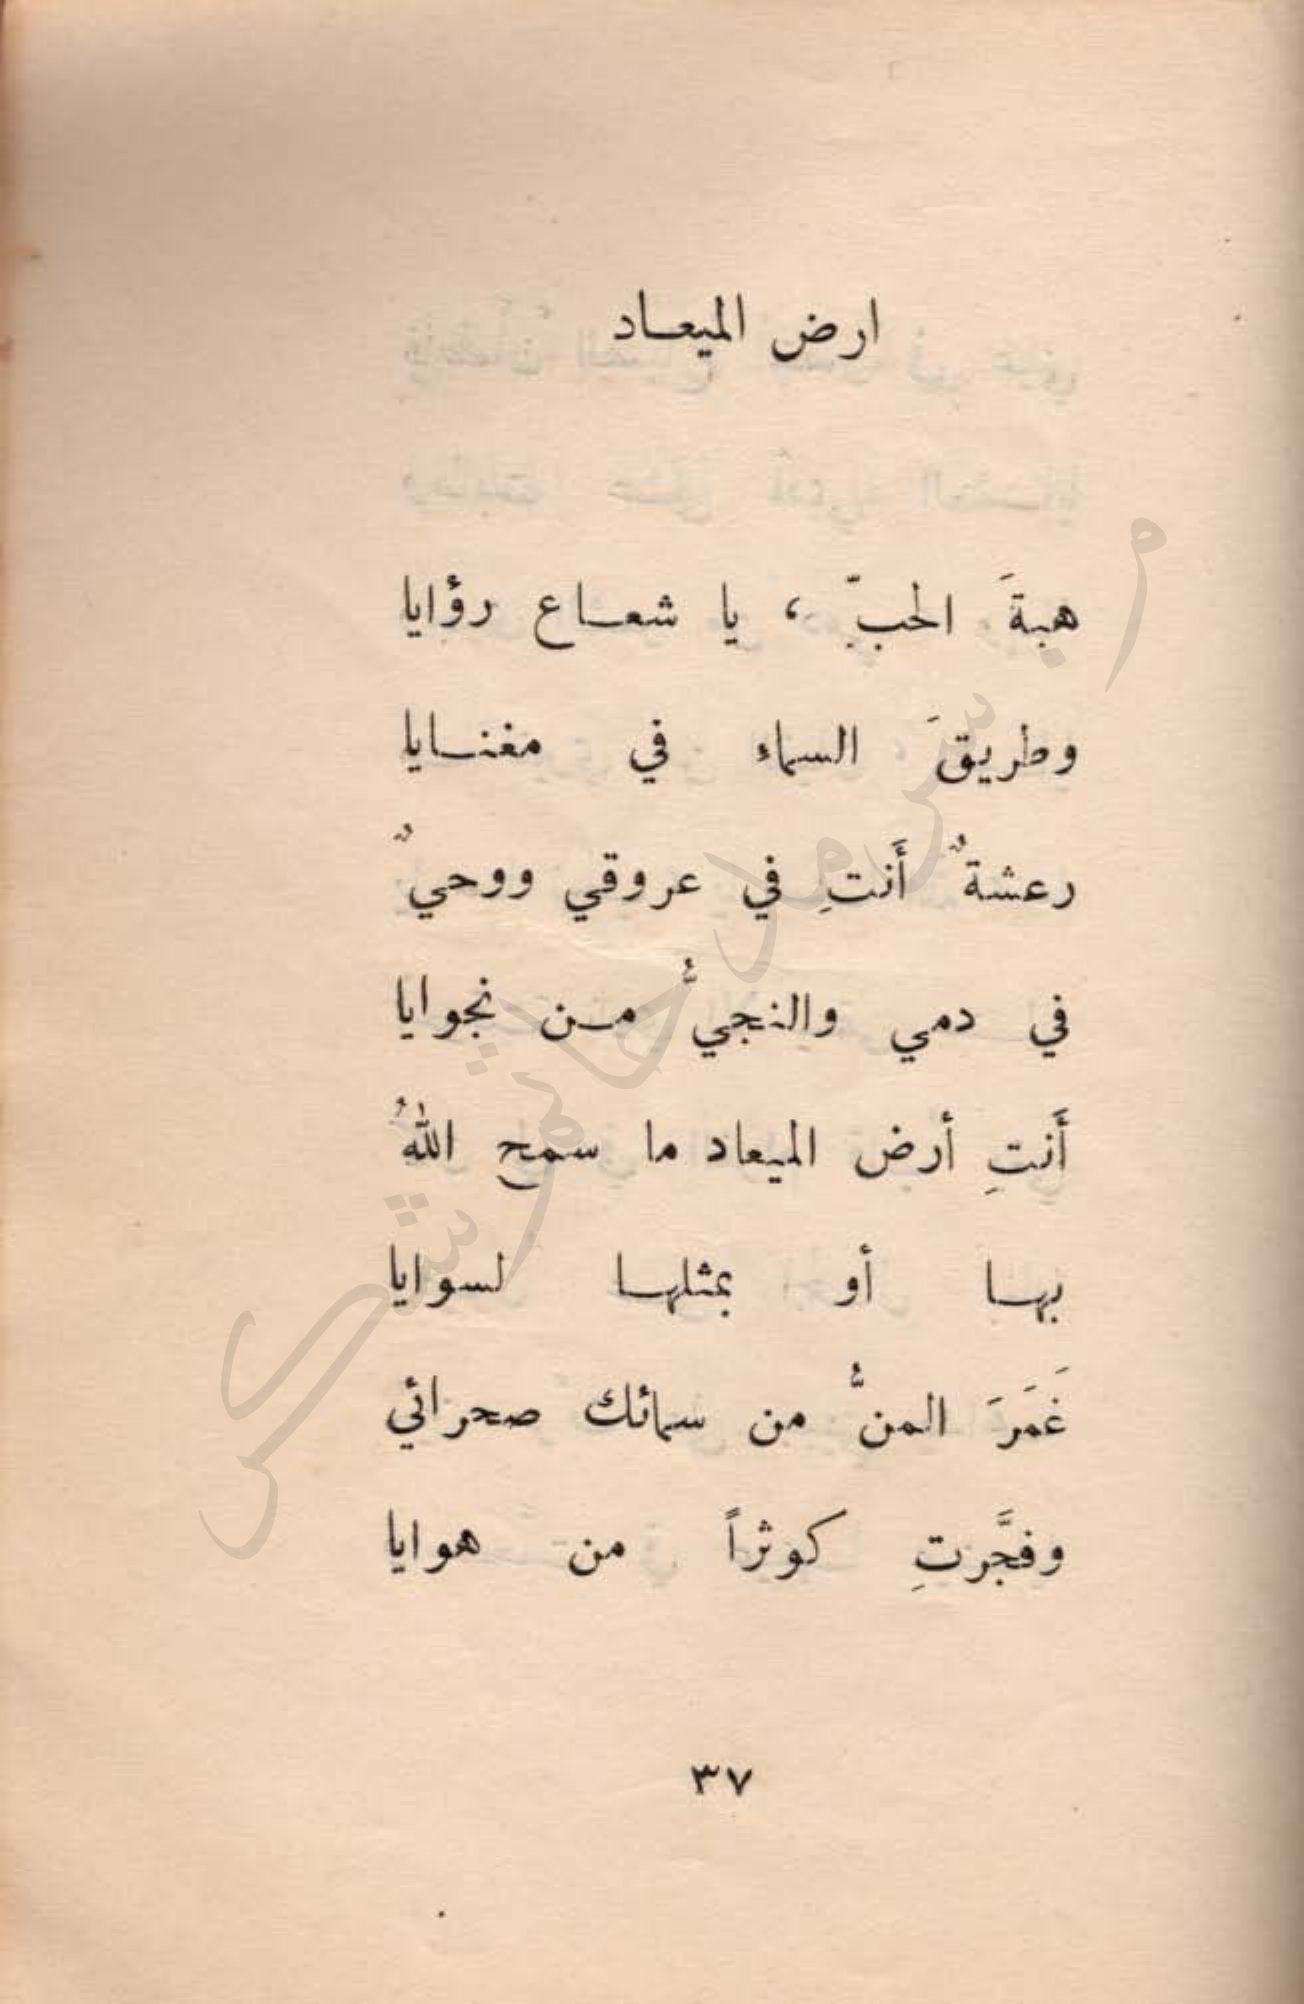 ارض الميعـاد
هبةَ الحبِّ ، يا شعـاع رؤايا
وطريقَ السماء في مغنـايا
رعشةٌ أَنتِ في عروقي ووحيٌ
في دمي والنجيُّ مـن نجوايا
أَنتِ أرض الميعاد ما سمح اللهُ
بهـا أو بمثلهـا لسوايا
غَمَرَ المنُّ من سمائك صحرائي
وفجَّرتِ كوثراً من هوايا
٣٧